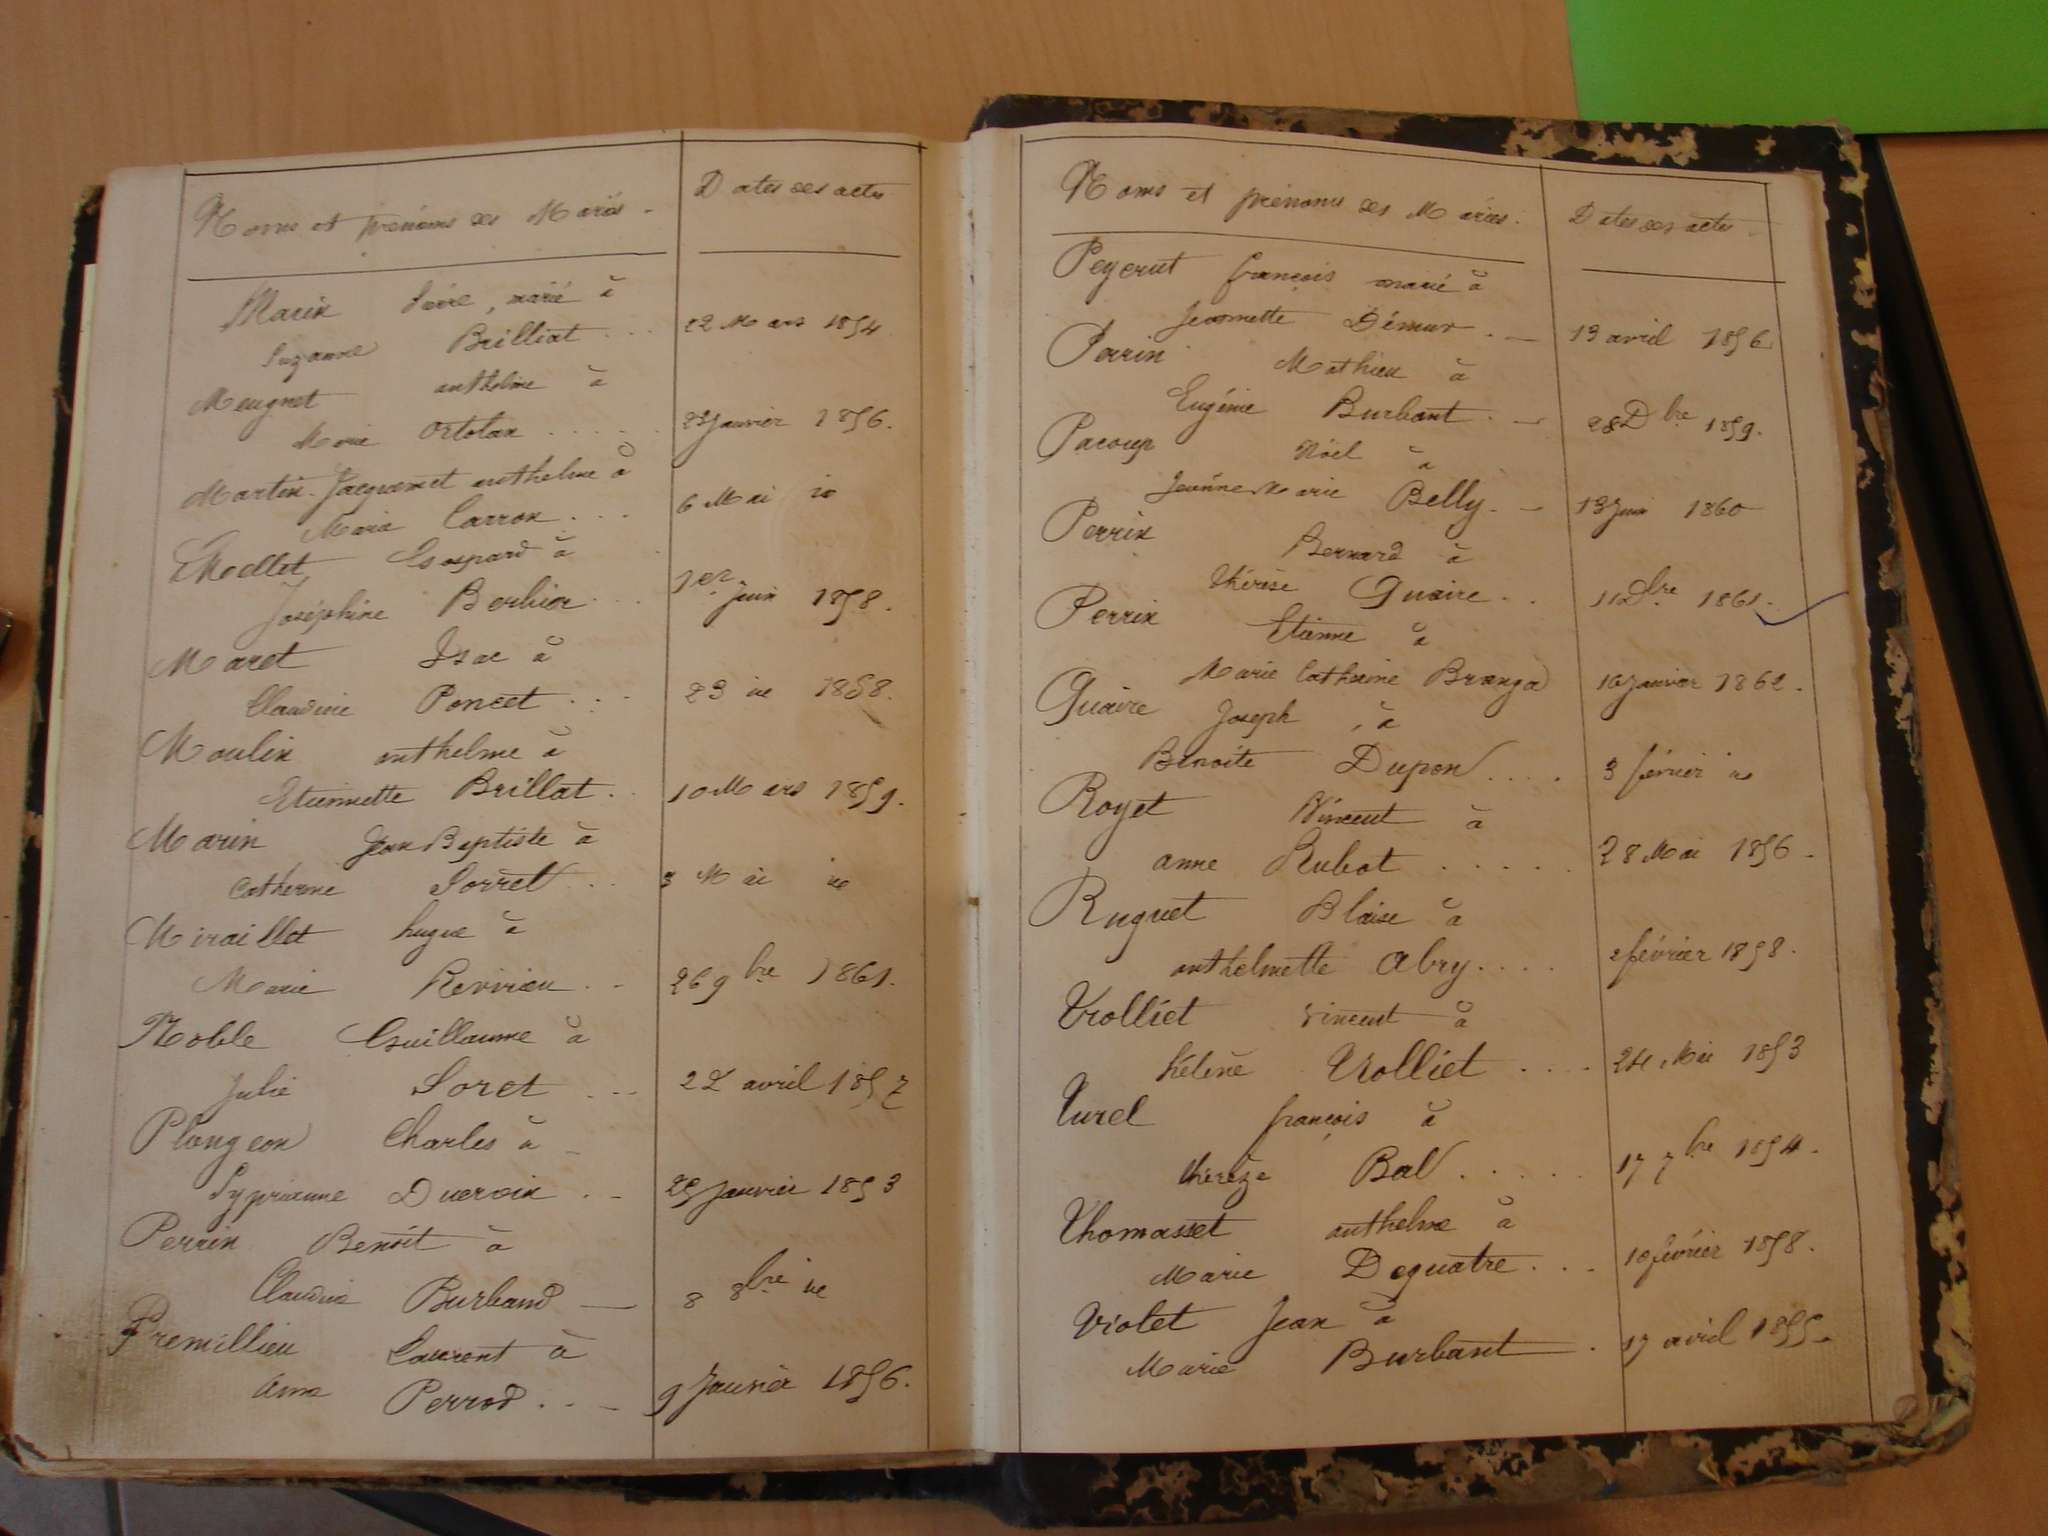 Noms et prénoms des Mariés.
Dates des actes
Marin , marié à
Suzanne Brilliat . . . 22 Mars 1854
Meugnet anthelme à
Marie Ortolan . . . . . 25 Janvier 1856.
Martin-Jacquemet anthelme à
Maria Carron . . . 6 Mai
Mollet Gaspard à
Joséphine Berlioz . . . 1er Juin 1858.
Maret Isac à
Claudine Poncet . . . 23 1858.
Moulin anthelme à
Etiennette Brillat . . 10 Mars 1859.
Marin Jean Baptiste à
Catherine Sorret . . . 3 Mai
Miraillet hugue à
Marie Revirieu . . 26 9bre 1861.
Noble Guillaume à
Julie Soret . . . 22 avril 1857
Plongeon Charles à
Sypriame Ducroix . . 25 Janvier 1853
Perrin Benoit à
Claudine Burband — 8 8bre
Premillieu Laurent à
Anne Perrod . . . 9 Janvier 1856.
Noms et prénoms des Mariés.
Dates des actes
Peyerut françois marié à
Jeannette Démur . — 13 avril 1856
Perrin Mathieu à
Eugénie Burbant . — 28 Dbre 1859.
Pacoup Noël à
Jeanne Marie Belly . — 13 Juin 1860
Perrin Bernard à
thérèse Guaire . . 11 Dbre 1861.
Perrin Etienne à
Marie Catherine Branga 16 Janvier 1862.
Guaire Joseph , à
Benoite Dupond . . . . 3 février
Royet Vincent à
anne Rubot . . . . . 28 Mai 1856.
Ruguet Blaise à
anthelmette Abry . . . . 2 février 1858.
Trolliet vincent à
hélène Trolliet . . . . 24 Mai 1853
Turel françois à
thérèze Bal . . . . . 17 7bre 1854.
Thomasset anthelme à
Marie Dequatre . . . 10 février 1858.
Violet Jean à
Marie Burbant . 17 avril 1855.